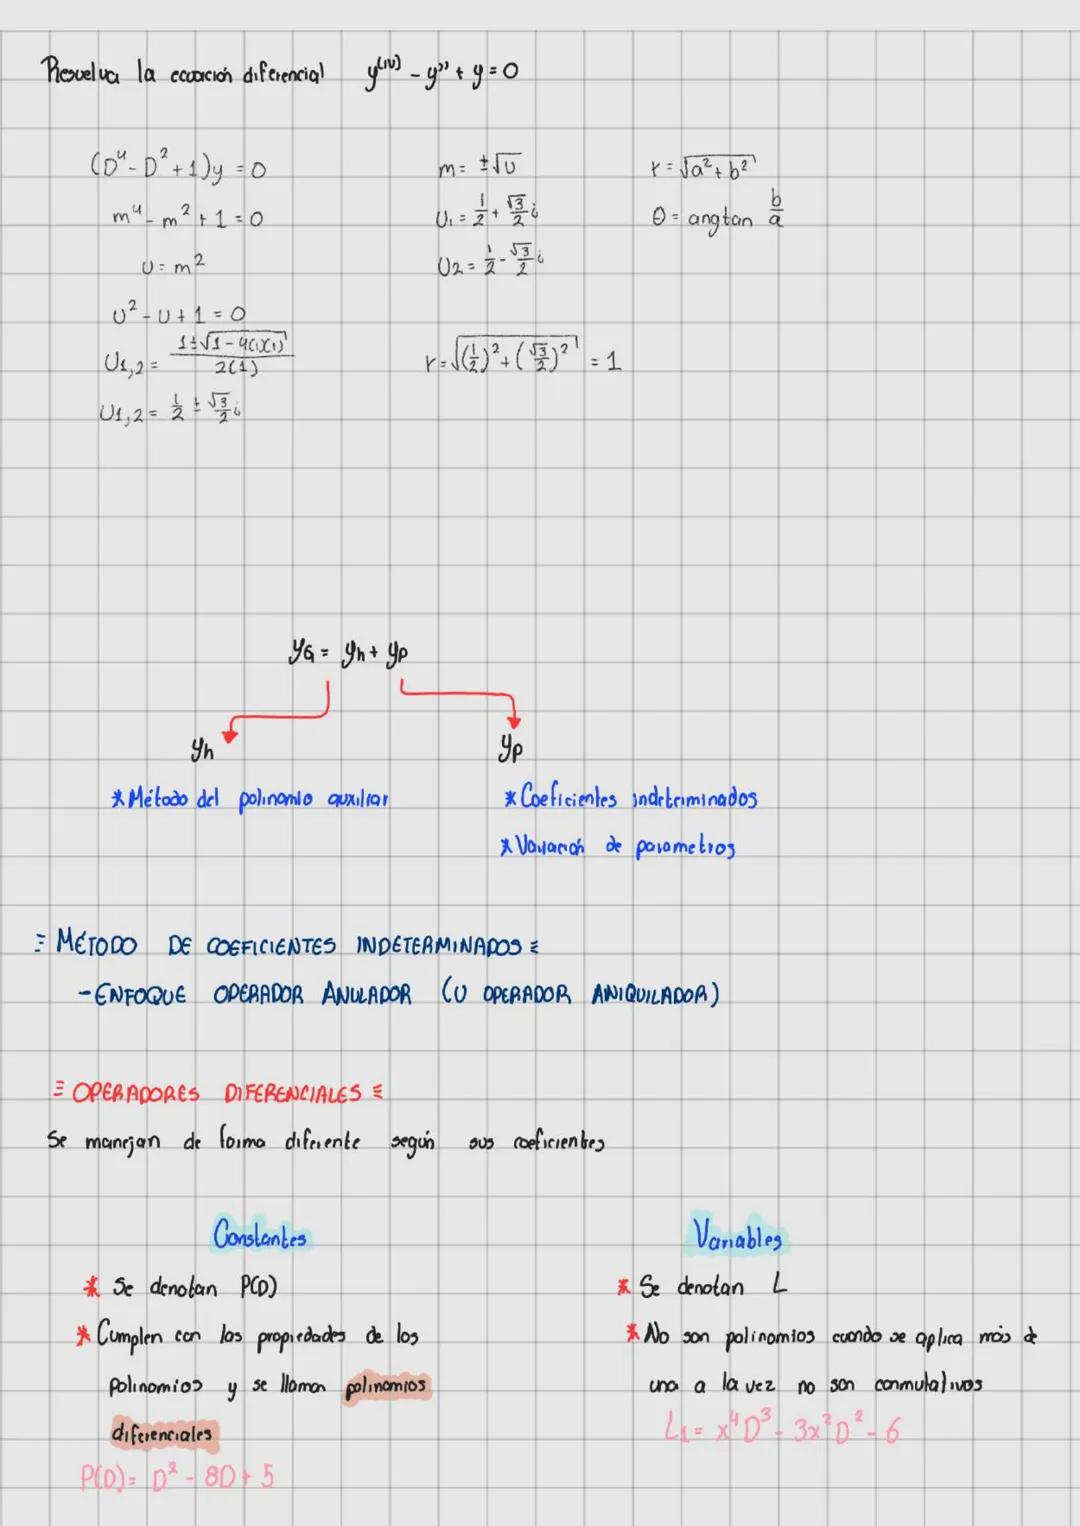 Resuelva la ecuación diferencial y^(IV) - y'' + y = 0
(D^4 - D^2 + 1)y = 0
m^4 - m^2 + 1 = 0
U = m^2
U^2 - U + 1 = 0
U1,2 = (1 ± √(1 - 4(1)(1))) / 2(1)
U1,2 = 1/2 ± √3/2 i
m = ±√U
U1 = 1/2 + √3/2 i
U2 = 1/2 - √3/2 i
r = √(a^2 + b^2)
θ = angtan b/a
r = √((1/2)^2 + (√3/2)^2) = 1
yG = yh + yp
yh
* Método del polinomio auxiliar
yp
* Coeficientes indeterminados
* Variación de parametros
= MÉTODO DE COEFICIENTES INDETERMINADOS =
- ENFOQUE OPERADOR ANULADOR (U OPERADOR ANIQUILADOR)
= OPERADORES DIFERENCIALES =
Se manejan de forma diferente según sus coeficientes
Constantes
* Se denotan P(D)
* Cumplen con las propiedades de los
polinomios y se llaman polinomios
diferenciales
P(D) = D^2 - 8D + 5
Variables
* Se denotan L
* No son polinomios cuando se aplica más de
una a la vez no son conmutativos
L1 = x^4D^3 - 3x^2D^2 - 6